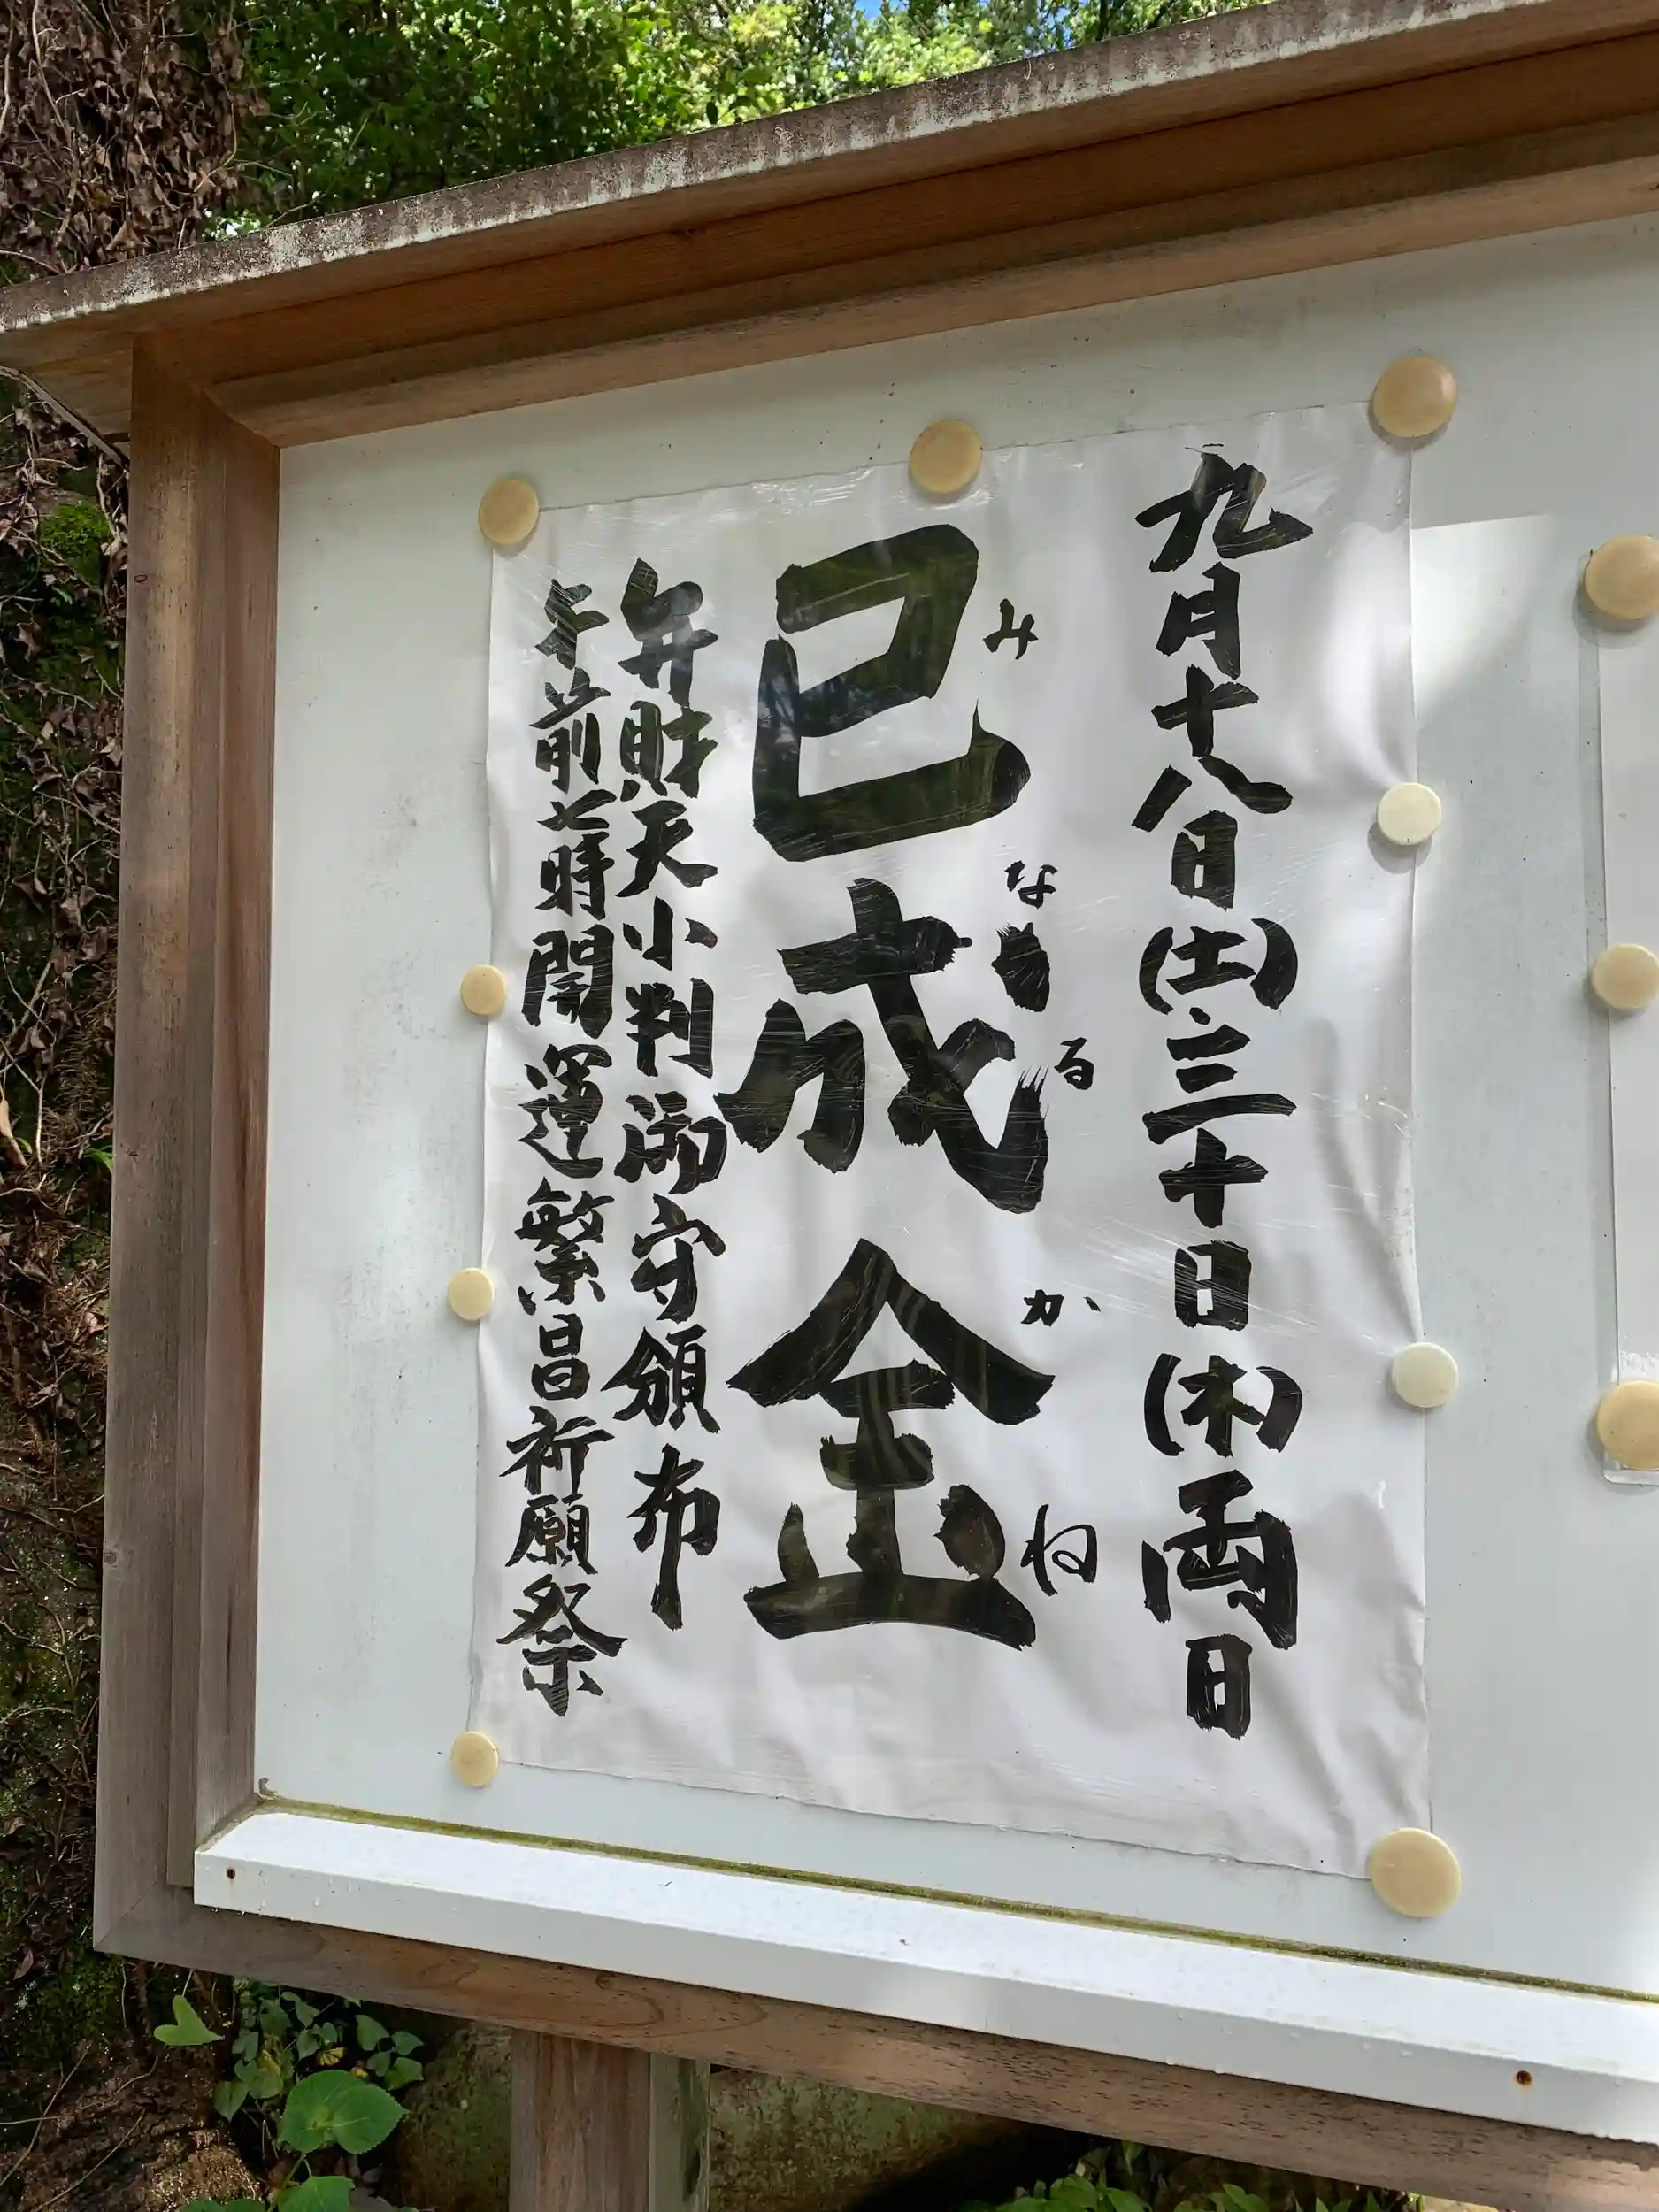 九月十八日(土)・三十日(木)両日
み なる かね
巳成金
弁財天小判御守頒布
午前七時開運繁昌祈願祭